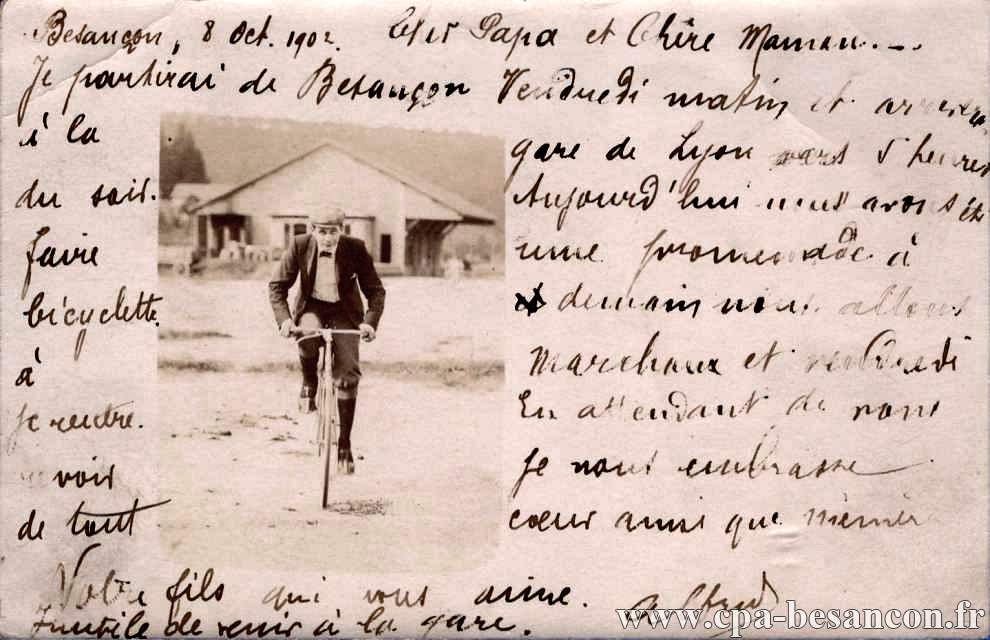 Besançon, 8 Oct. 1902. Cher Papa et Chère Maman. —
Je partirai de Besançon Vendredi matin et
à la gare de Lyon vers 5 heures
du soir. Aujourd'hui nous avons été
faire une promenade à
bicyclette. demain nous allons
à Marchaux et vendredi
je rentre. En attendant de vous
revoir je vous embrasse
de tout cœur ainsi que mémère
Votre fils qui vous aime. Alfred
Inutile de venir à la gare.
www.cpa-besancon.fr